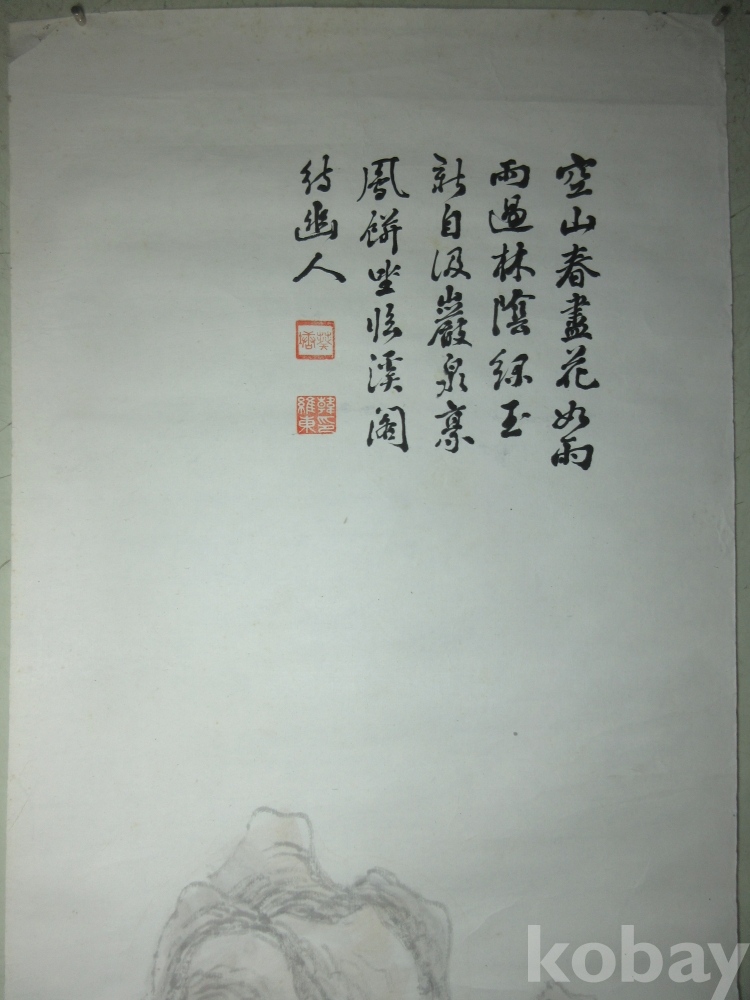 空山春盡花如雨
雨過林陰綠玉
新自汲巖泉烹
鳳餅坐臨溪閣
待幽人
韓維東印
kobay